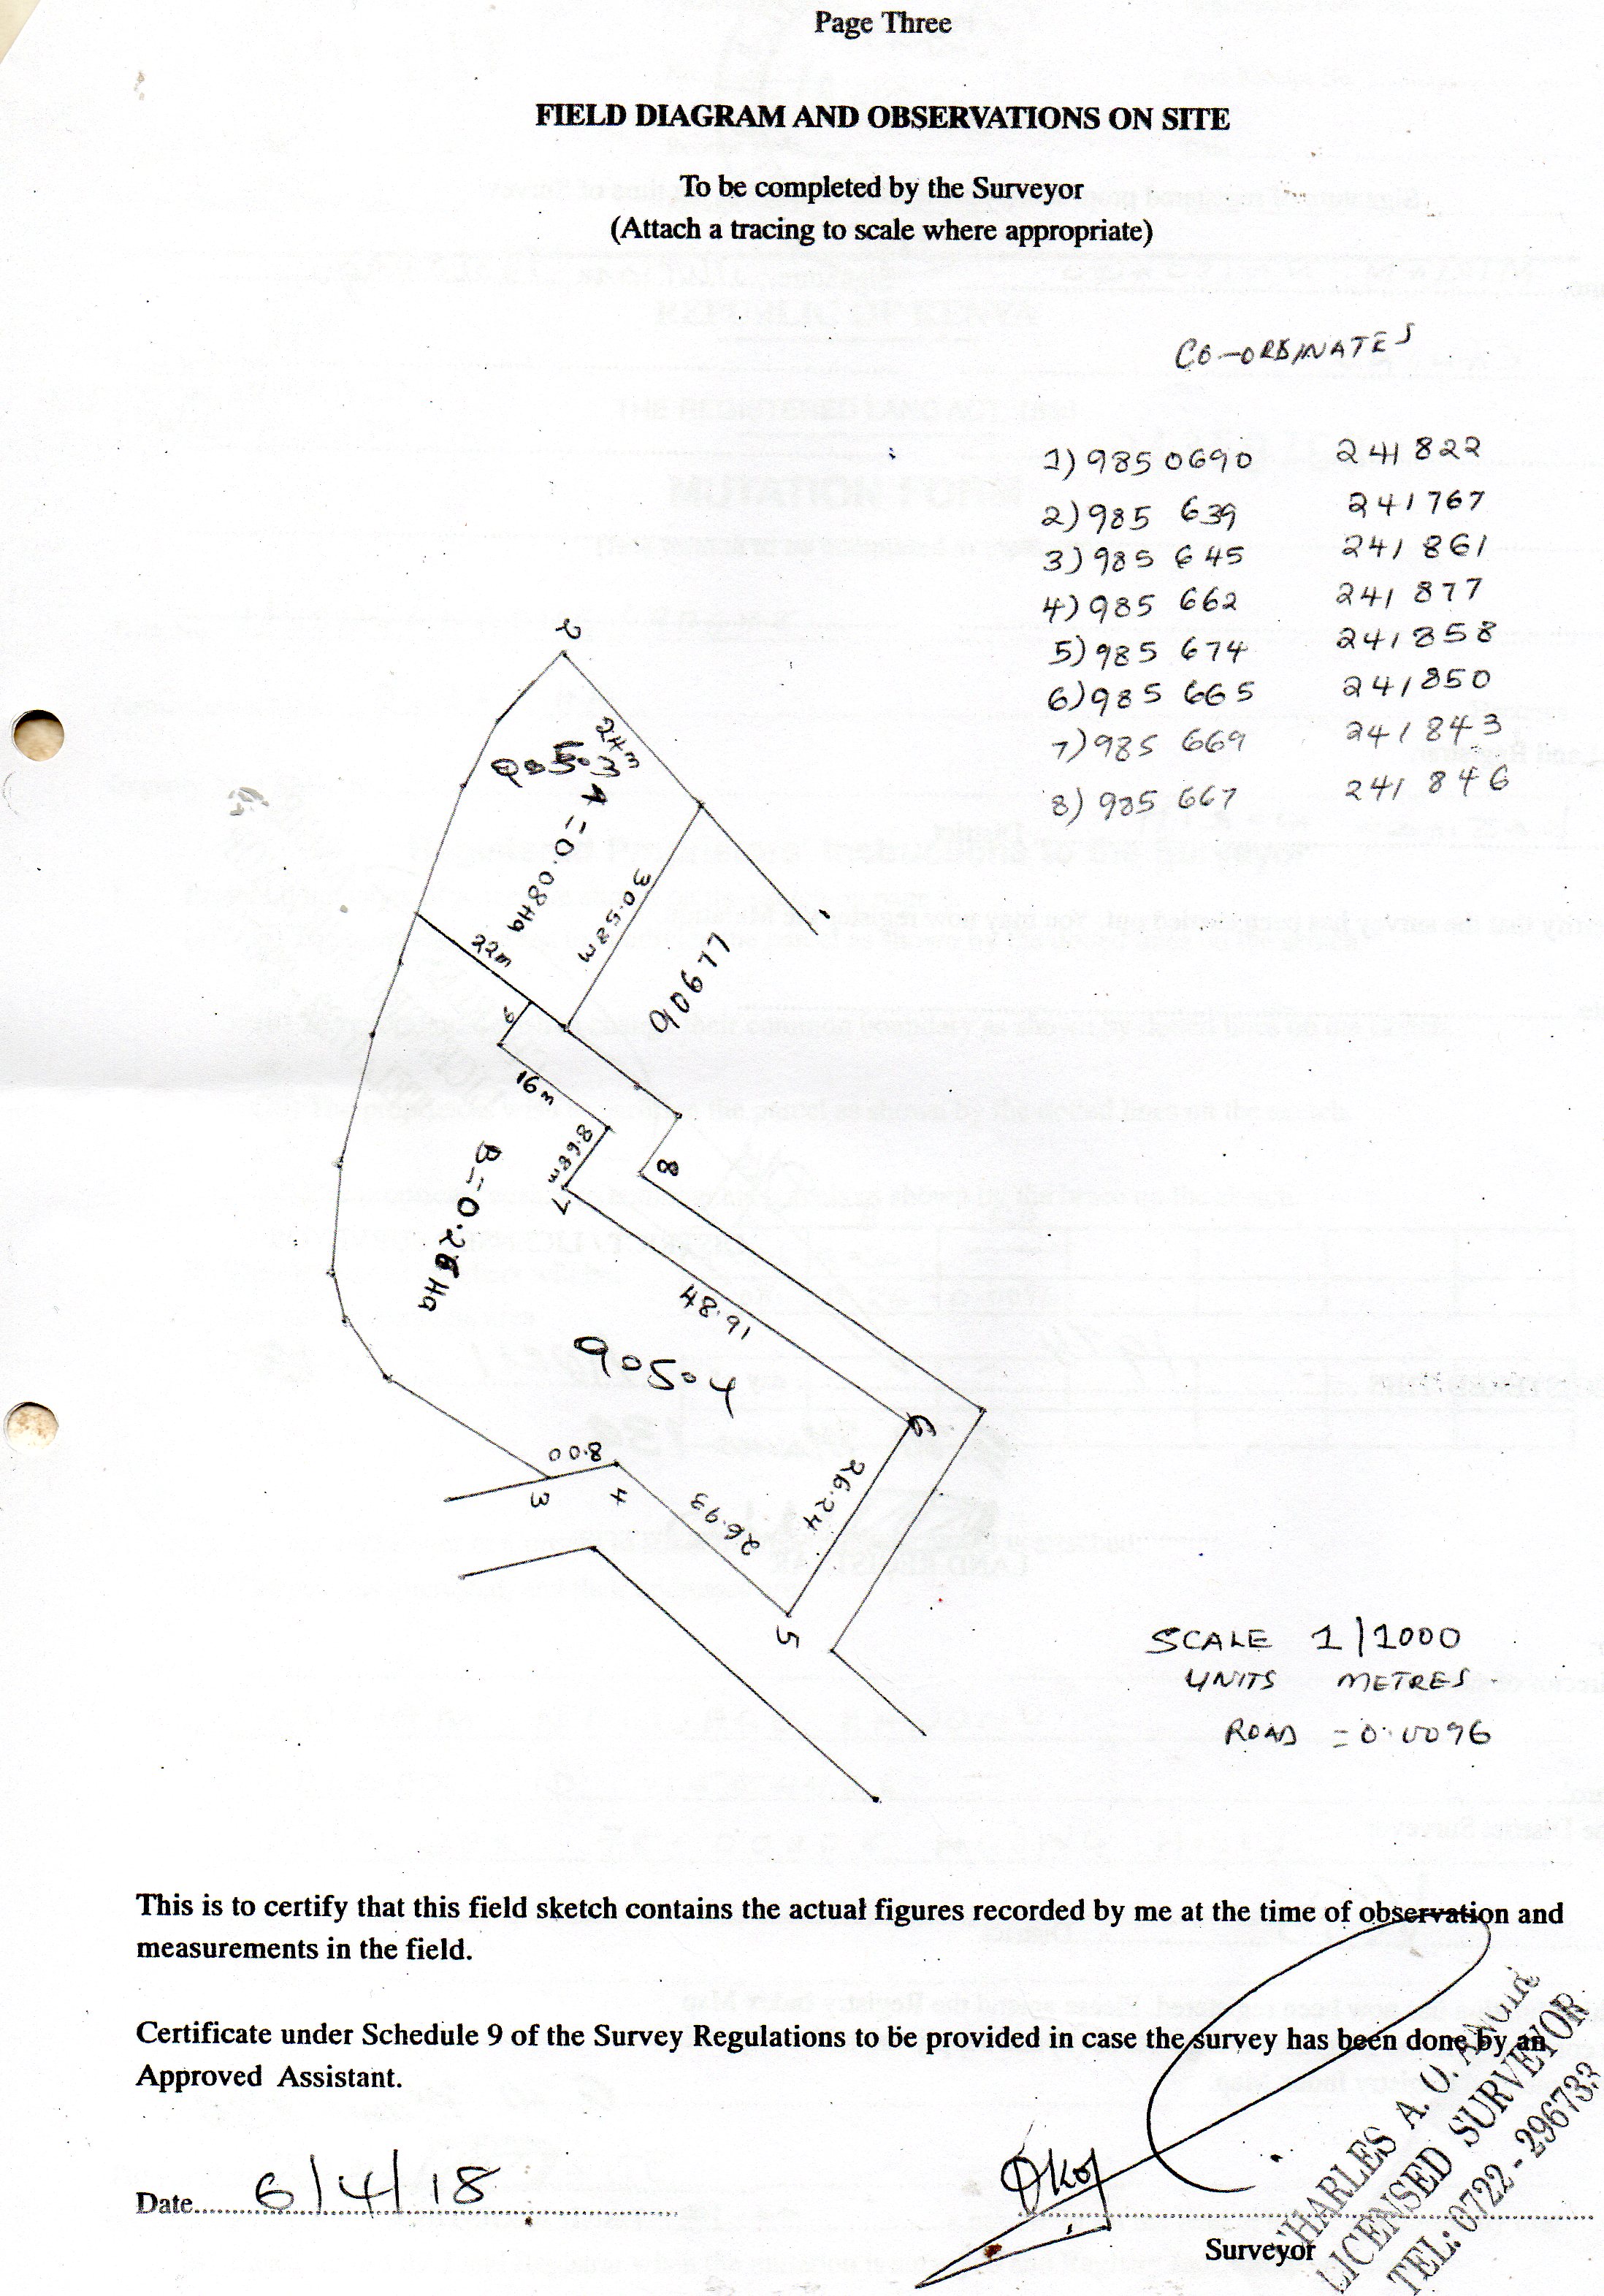 Page Three
FIELD DIAGRAM AND OBSERVATIONS ON SITE
To be completed by the Surveyor
(Attach a tracing to scale where appropriate)
CO-ORDINATES
1) 985 0690 241 822
2) 985 639 241 767
3) 985 645 241 861
4) 985 662 241 877
5) 985 674 241 858
6) 985 665 241 850
7) 985 669 241 843
8) 985 667 241 846
2
24m
90503
A = 0.08Ha
30.58m
1
90677
22m
9
16m
8.68m
8
7
B = 0.26Ha
48.91
90504
6
8.00
3
4
26.93
26.24
5
SCALE 1/1000
UNITS METRES
ROAD = 0.0096
This is to certify that this field sketch contains the actual figures recorded by me at the time of observation and
measurements in the field.
Certificate under Schedule 9 of the Survey Regulations to be provided in case the survey has been done by an
Approved Assistant.
Date 6/4/18
Surveyor
CHARLES A. O.
LICENSED SURVEYOR
TEL: 0722 - 296733